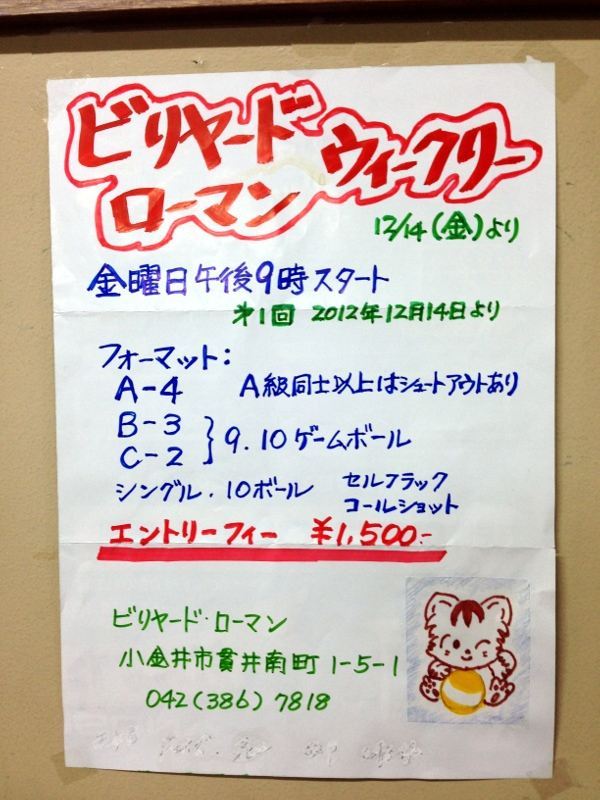 ビリヤード ウィークリー
ローマン
12/14(金)より
金曜日午後9時スタート
才1回 2012年12月14日より
フォーマット:
A-4 A級同士以上はシュートアウトあり
B-3
C-2 } 9.10ゲームボール
シングル.10ボール セルフラック
コールショット
エントリーフィー ¥1,500-
ビリヤード・ローマン
小金井市貫井南町1-5-1
042(386)7818